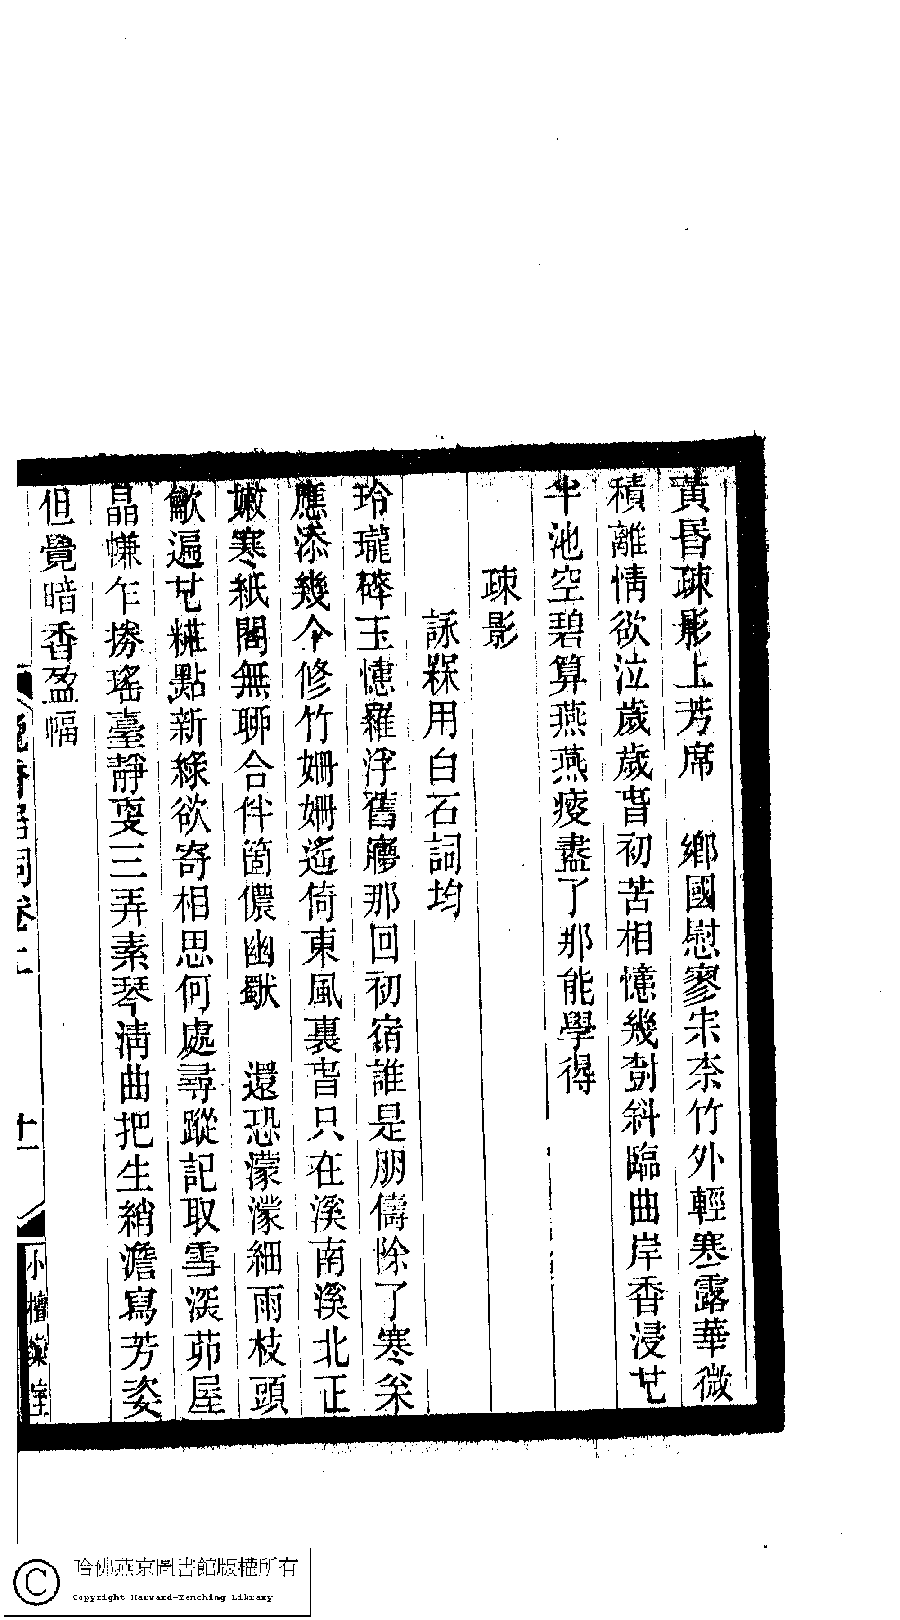 黃昏疎影上芳席　鄉國慰寥宋柰竹外輕寒露華微
積離情欲泣歲歲旹初苦相憶幾尌斜臨曲岸香浸芚
半池空碧算燕燕痠盡了那能學得
疎影
詠槑用白石詞均
玲瓏碎玉憶羅浮舊廫那回初宿誰是朋儔除了寒
應添幾个修竹姍姍遙倚東風裏旹只在溪南溪北正
嫩寒紙閣無聊合伴箇儂幽獸　還恐濛濛細雨枝頭
歡遍糚點新綠欲寄相思何處尋蹤記取雪深茆屋
晶㡘乍撈瑤臺靜耍三弄素琴清曲把生綃澹寫芳姿
但覺暗香盈幅
晚香居詞卷二
十一
小檀欒室
哈佛燕京圖書館版權所有
Copyright Harvard-Yenching Library